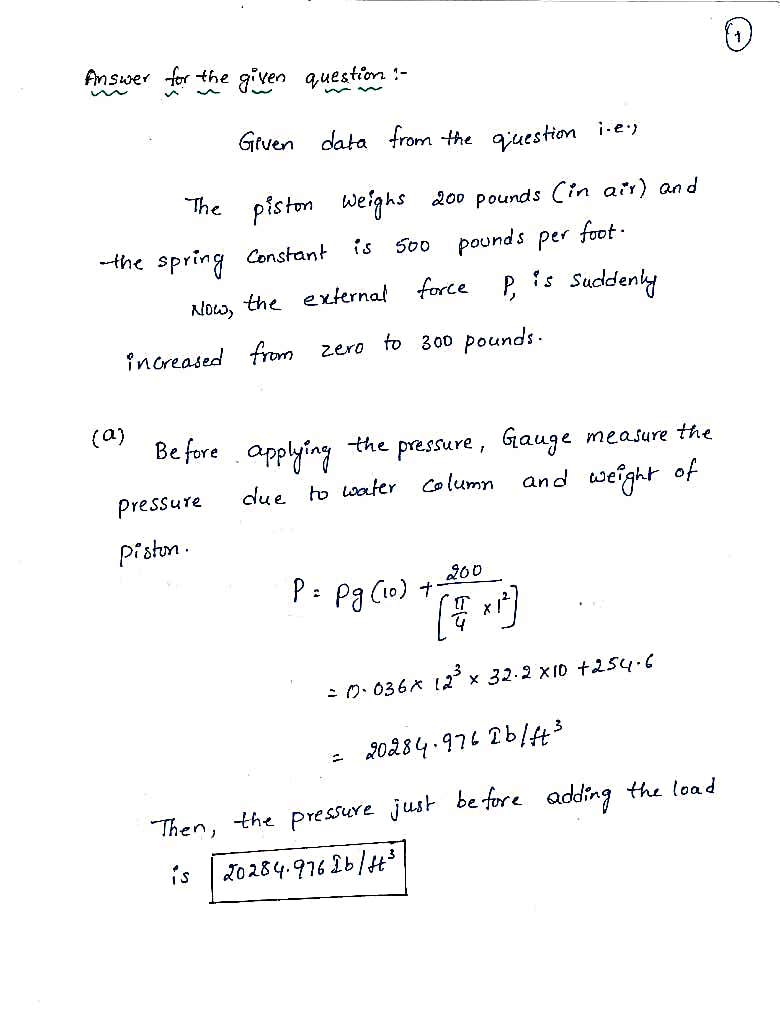 1
Answer for the given question :-
Given data from the question i.e.,
The piston weighs 200 pounds (in air) and
the spring constant is 500 pounds per foot.
Now, the external force P, is suddenly
increased from zero to 300 pounds.
(a) Before applying the pressure, Gauge measure the
pressure due to water column and weight of
piston.
P = ρg (10) + 200 / [π/4 × 1²]
= 0.036 × 12³ × 32.2 × 10 + 254.6
= 20284.976 Ib/ft³
Then, the pressure just before adding the load
is 20284.976 Ib/ft³